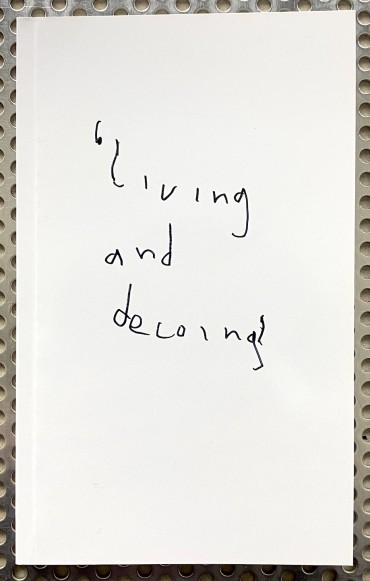 ‘living
and
decoing’